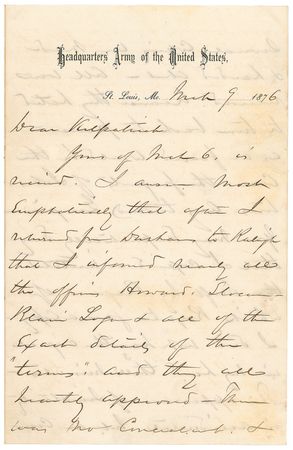 Headquarters Army of the United States,
St. Louis, Mo. March 9 1876
Dear Kilpatrick
Yours of Mch 6. is
recvd. I answer most
Emphatically that after I
returned from Durhams to Raleigh
that I informed nearly all
the officers Howard, Slocum
Blair Logan & all of the
Exact details of the
"terms" and they all
heartily approved — There
was no Concealmt. &